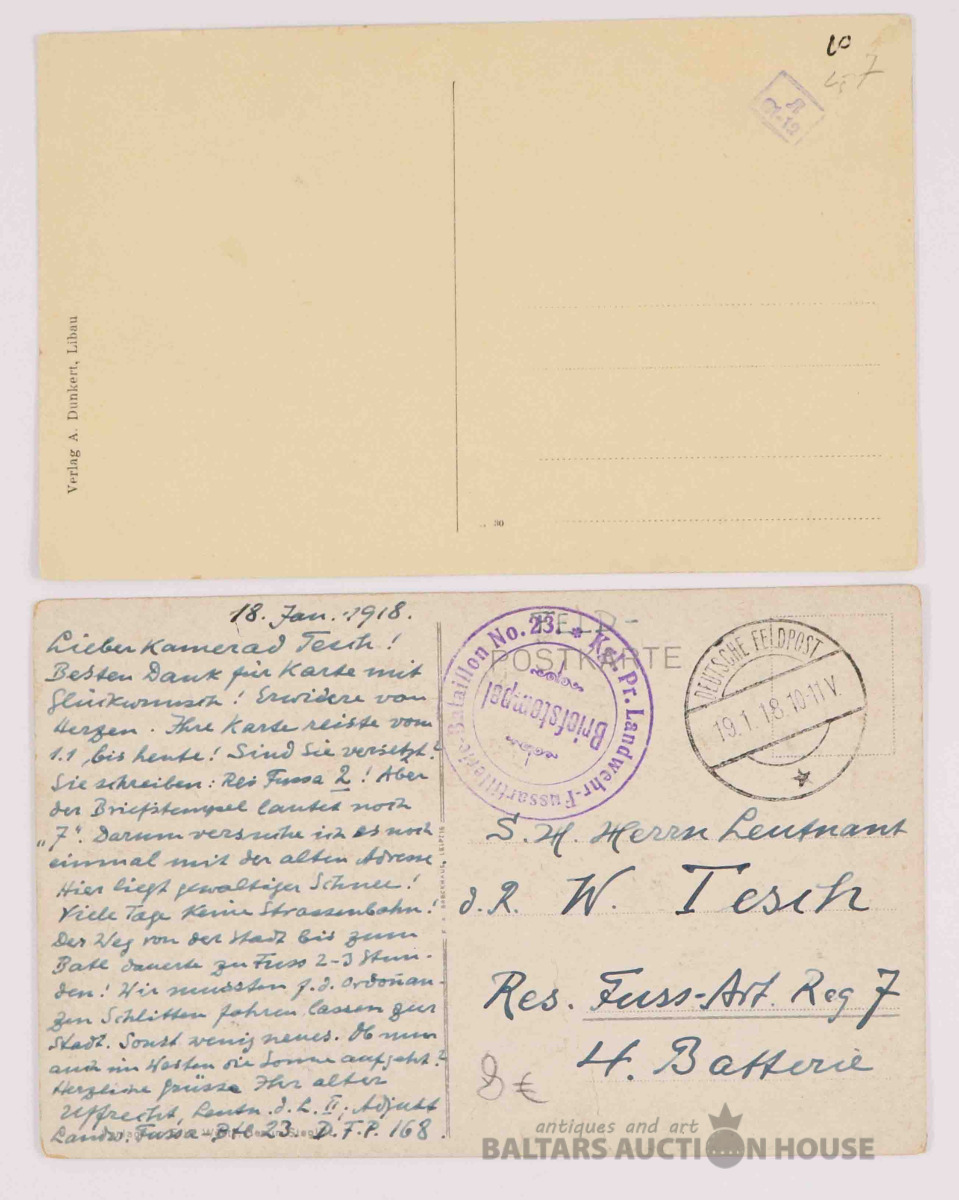 10
47
Л
Ст-12
Verlag A. Dunkert, Libau
30
18. Jan. 1918.
Lieber Kamerad Tesch!
Besten Dank für Karte mit
Glückwunsch! Erwidere von
Herzen. Ihre Karte reiste vom
1.1. bis heute! Sind Sie versetzt?
Sie schreiben: Res Fussa 2! Aber
der Briefstempel lautet noch
"7". Darum versuche ich es noch
einmal mit der alten Adresse.
Hier liegt gewaltiger Schnee!
Viele Tage keine Strassenbahn!
Der Weg von der Stadt bis zum
Batl dauerte zu Fuss 2-3 Stun-
den! Wir mussten f. d. Ordonan-
zen Schlitten fahren lassen zur
Stadt. Sonst wenig neues. Ob nun
auch im Westen die Sonne aufgeht?
Herzliche Grüsse Ihr alter
Uffrecht, Leutn. d. L. II, Adjutt
Landw. Fussa Btl 23 D.F.P. 168.
F. A. BROCKHAUS, LEIPZIG
FELD-
POSTKARTE
Kgl. Pr. Landwehr-Fussartillerie-Bataillon No. 23. *
Briefstempel
DEUTSCHE FELDPOST
19.1.18.10-11V.
S. H. Herrn Leutnant
d. R. W. Tesch
Res. Fuss-Art. Reg 7
4. Batterie
8 €
antiques and art
BALTARS AUCTION HOUSE